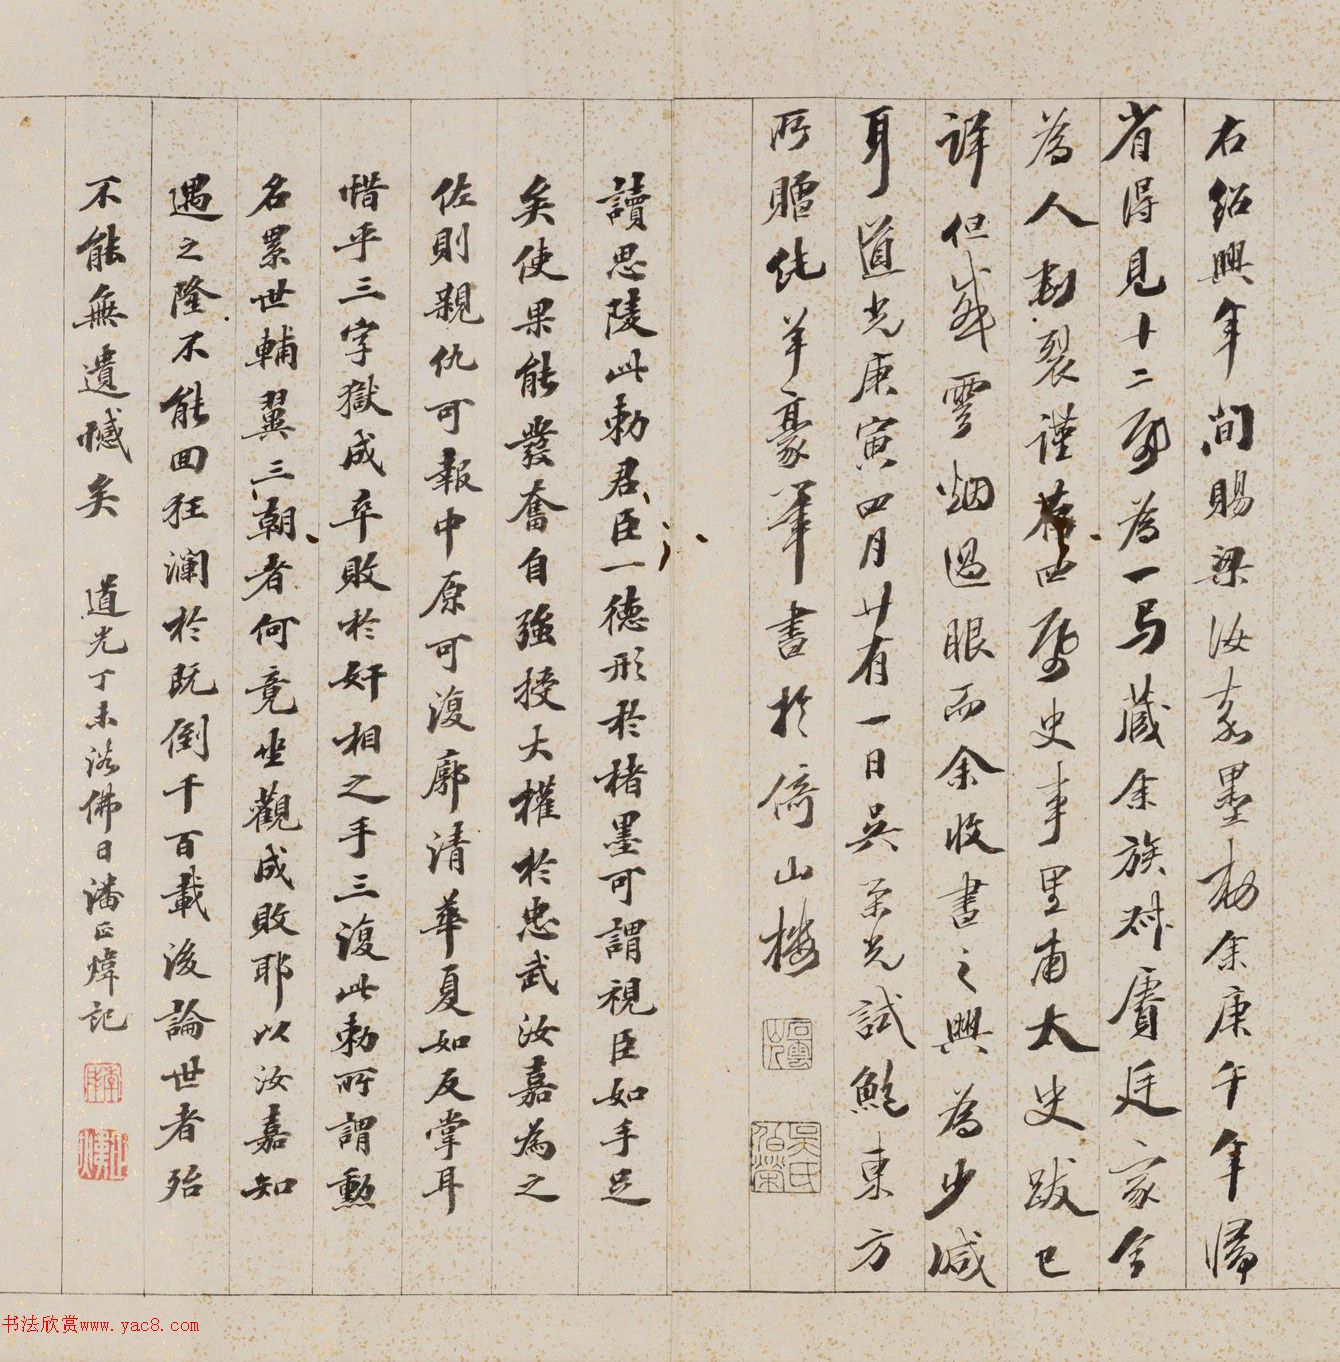 右紹興年間賜梁汝嘉墨勅余庚午年歸
省得見十二啟為一马藏余族尌賡廷家今
為人割裂謹存四啟史事里甫太史跋已
詳但感雲烟過眼而余收書之興為少減
耳道光庚寅四月廿有一日吳榮光試鮑東方
所贈純羊豪筆書於倚山樓
石雲山人
吳氏伯榮
讀思陵此勅君臣一德形於楮墨可謂視臣如手足
矣使果能發奮自強授大權於忠武汝嘉為之
佐則親仇可報中原可復廓清華夏如反掌耳
惜乎三字獄成卒敗於奸相之手三復此勅所謂勲
名累世輔翼三朝者何竟坐觀成敗耶以汝嘉知
遇之隆不能回狂瀾於既倒千百載後論世者殆
不能無遺憾矣 道光丁未浴佛日潘正煒記
季彤
正煒
书法欣赏www.yac8.com